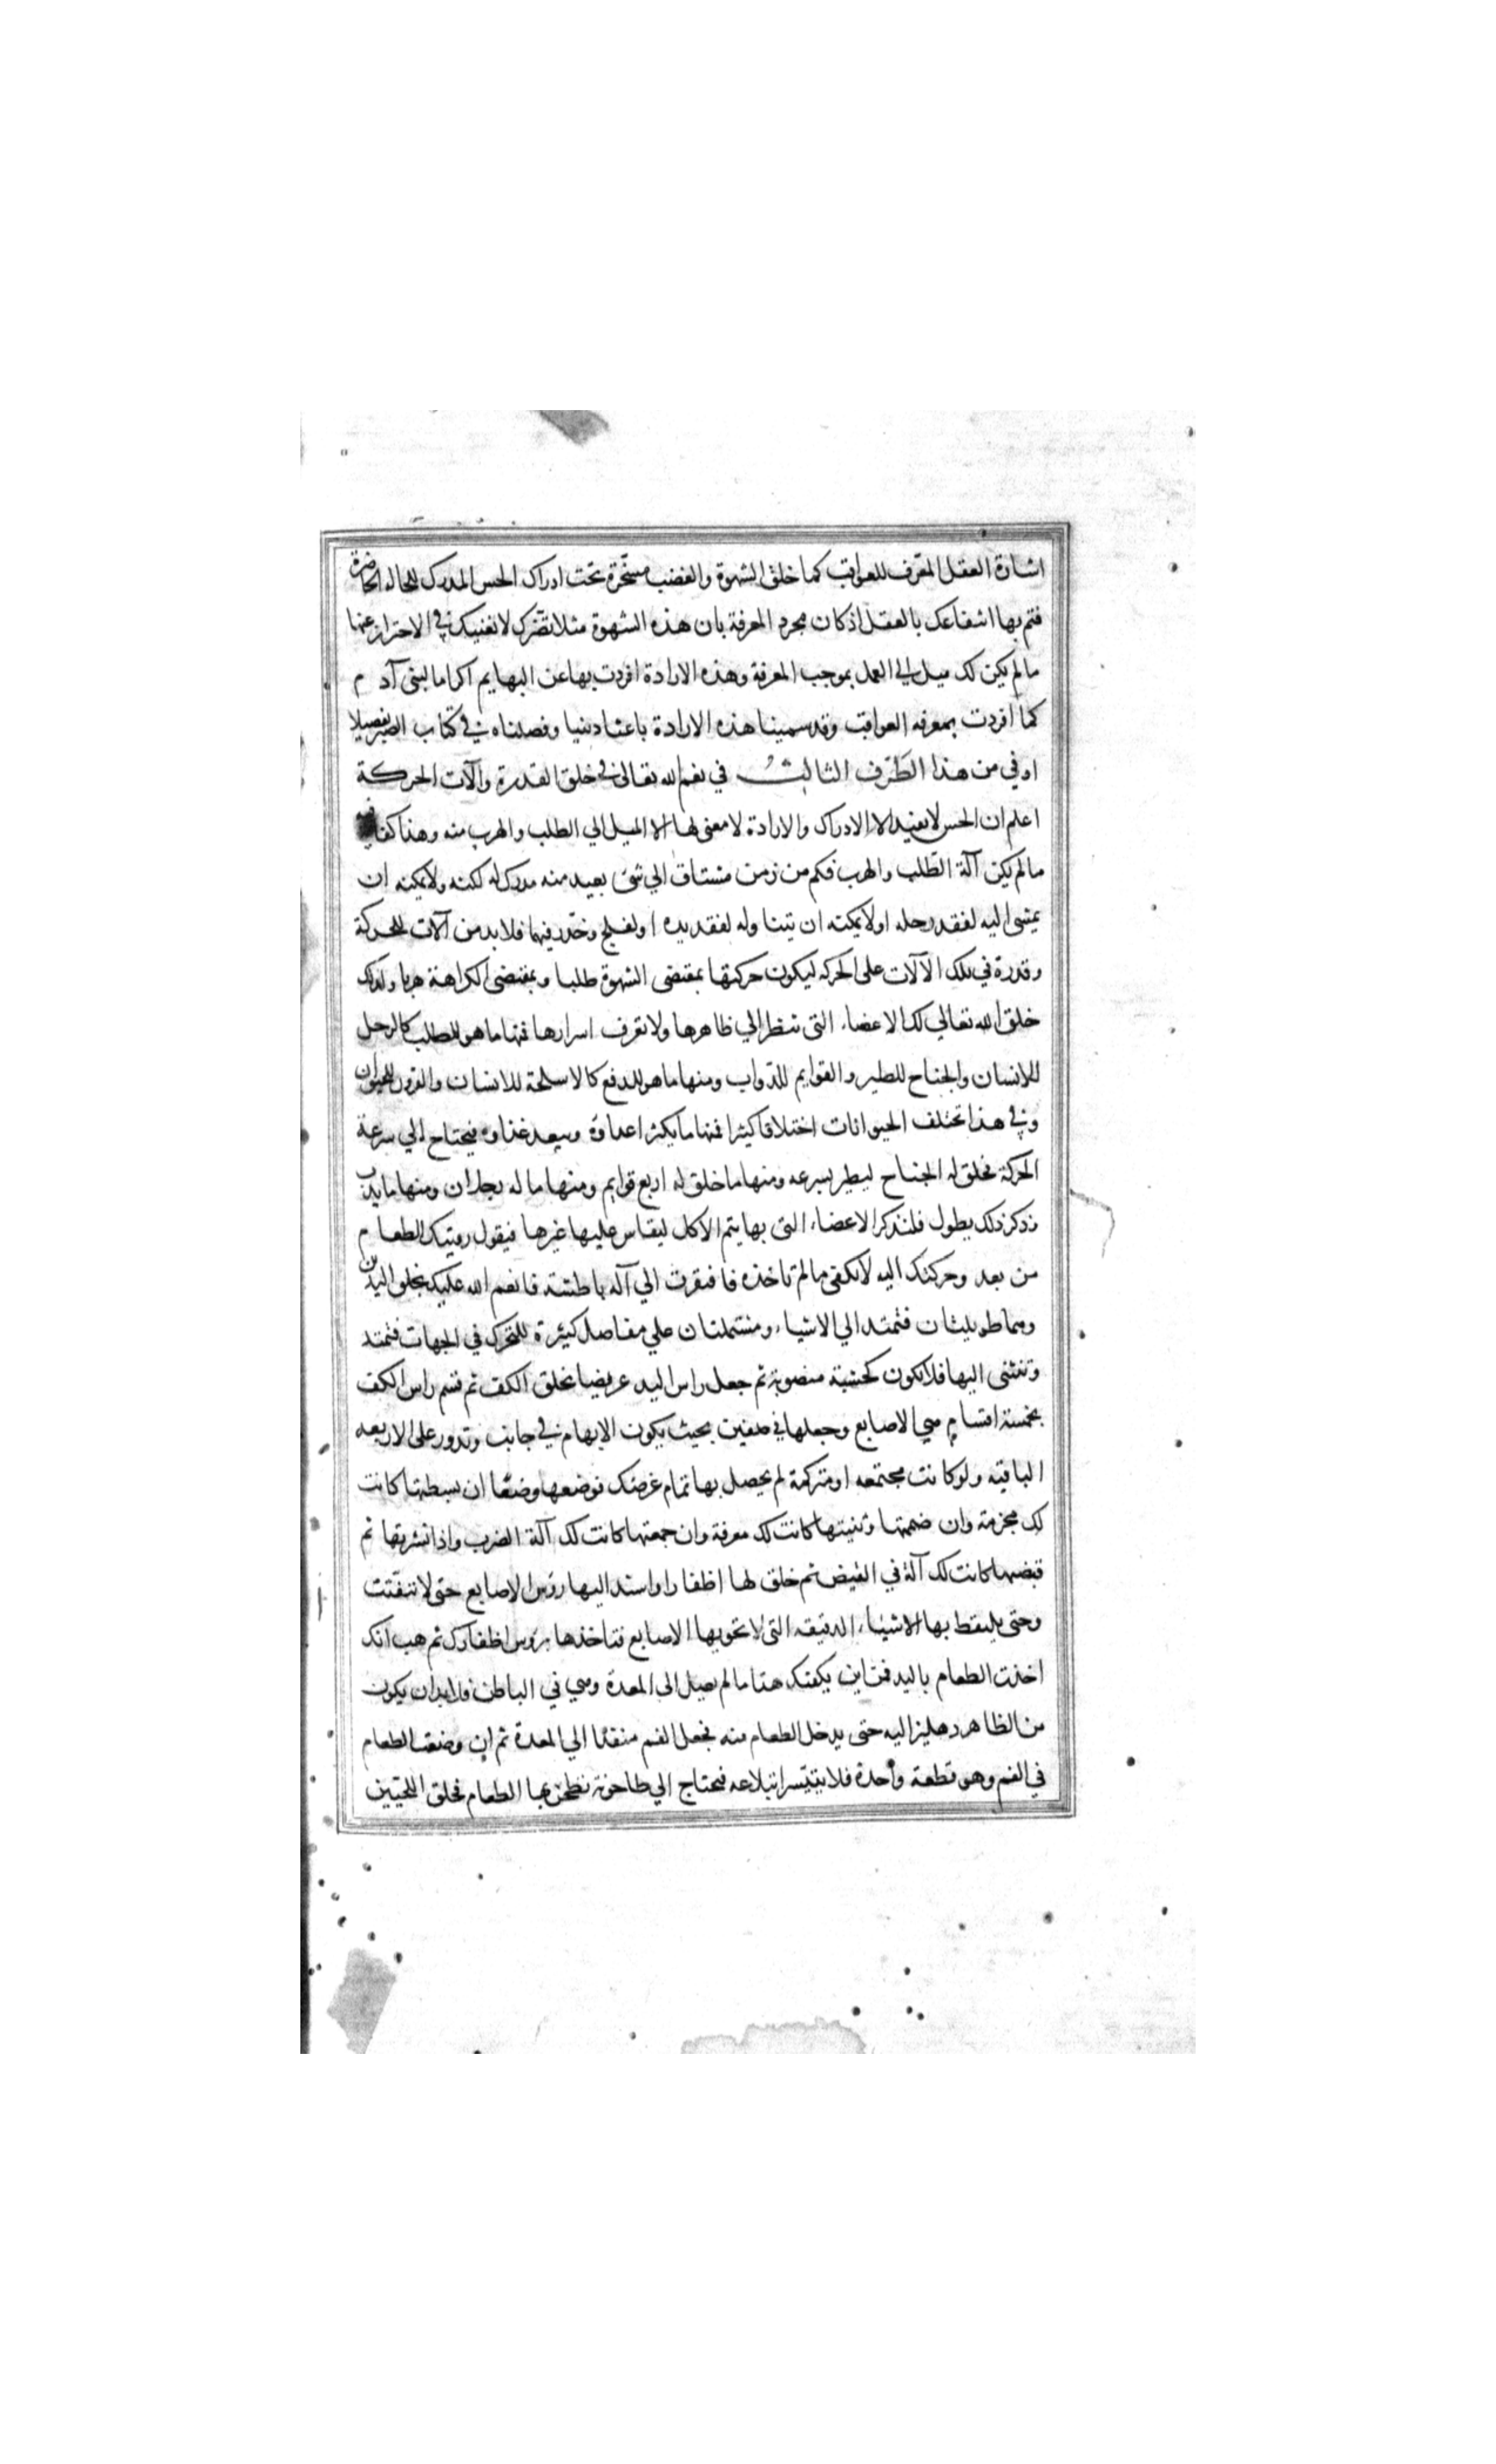 اشارة العقل المعرف للعواقب كما خلق الشهوة والغضب مسخرة تحت ادراك الحس المدرك للحالة الحاضرة
فتم بها انتفاعك بالعقل اذ كان مجرد المعرفة بان هذه الشهوة مثلا تضرك لا تغنيك في الاحتراز عنها
مالم يكن لك ميل الى العمل بموجب المعرفة وهذه الارادة افردت بها عن البهايم اكراما لبنى آدم
كما افردت بمعرفه العواقب وقد سمينا هذه الارادة باعثا دينيا وفصلناه في كتاب الصبر تفصيلا
اوفي من هذا الطَرف الثالث في نعم الله تعالى في خلق القدرة والآت الحركة
اعلم ان الحس لا يفيد الا الادراك والارادة لا معنى لها الا الميل الي الطلب والهرب منه وهذا كفاية فيه
مالم يكن آلة الطلب والهرب فكم من زمن مشتاق الي شئ بعيد منه مدرك له لكنه ولا يمكنه ان
يمشى اليه لفقد رجله او لا يمكنه ان يتناوله لفقد يده او لفلج وخدر فيهما فلا بد من آلات للحركة
وقدرة في تلك الآلات على الحركه ليكون حركتها بمقتضى الشهوة طلبا وبمقتضى الكراهة هربا ولذلك
خلق الله تعالي لك الاعضاء التى تنظر الي ظاهرها ولا تعرف اسرارها فمنها ما هو للطلب كالرجل
للانسان والجناح للطير والقوايم للدواب ومنها ما هو للدفع كالاسلحة للانسان والقرون للحيوان
وفي هذا تختلف الحيوانات اختلافا كثيرا فمنها ما يكثر اعداؤه ويبعد غذاؤه فيحتاج الي سرعة
الحركة فخلق له الجناح ليطير بسرعه ومنها ما خلق له اربع قوايم ومنها ما له رجلان ومنها ما يدب
وذكر ذلك يطول فلنذكر الاعضاء التى بها يتم الاكل ليقاس عليها غيرها فيقول رويتك الطعام
من بعد وحركتك اليه لا تكفى مالم تاخذه فافتقرت الي آلة باطشة فانعم الله عليك بخلق اليدين
وهما طويلتان فتمتد الي الاشياء ومشتملتان علي مفاصل كثيرة للتحرك في الجهات فتمتد
وتنثنى اليها فلا تكون كخشبة منصوبة ثم جعل راس اليد عريضا بخلق الكف ثم قسم راس الكف
بخمسة اقسام هي الاصابع وجعلها في صفين بحيث يكون الابهام في جانب وتدور على الاربعه
الباقيه ولو كانت مجتمعه او متركمة لم يحصل بها تمام غرضك فوضعها وضعًا ان بسطتها كانت
لك مجرفة وان ضممتها وثنيتها كانت لك مغرفة وان جمعتها كانت لك آلة الضرب واذا نشرتها ثم
قبضتها كانت لك آلة في القبض ثم خلق لها اظفارا واسند اليها رؤس الاصابع حتى لا تتفتت
وحتى يلتقط بها الاشياء الدقيقه التى لا تحويها الاصابع فتاخذها برؤس اظفارك ثم هب انك
اخذت الطعام باليد فمن اين يكفتك هذا مالم يصل الى المعدة وهي في الباطن فلا بد ان يكون
من الظاهر دهليزا اليه حتى يدخل الطعام منه فجعل الفم منفذا الي المعدة ثم ان وضعت الطعام
في الفم وهو قطعة واحدة فلا يتيسر ابتلاعه فتحتاج الي طاحونة تطحن بها الطعام فخلق اللحيين